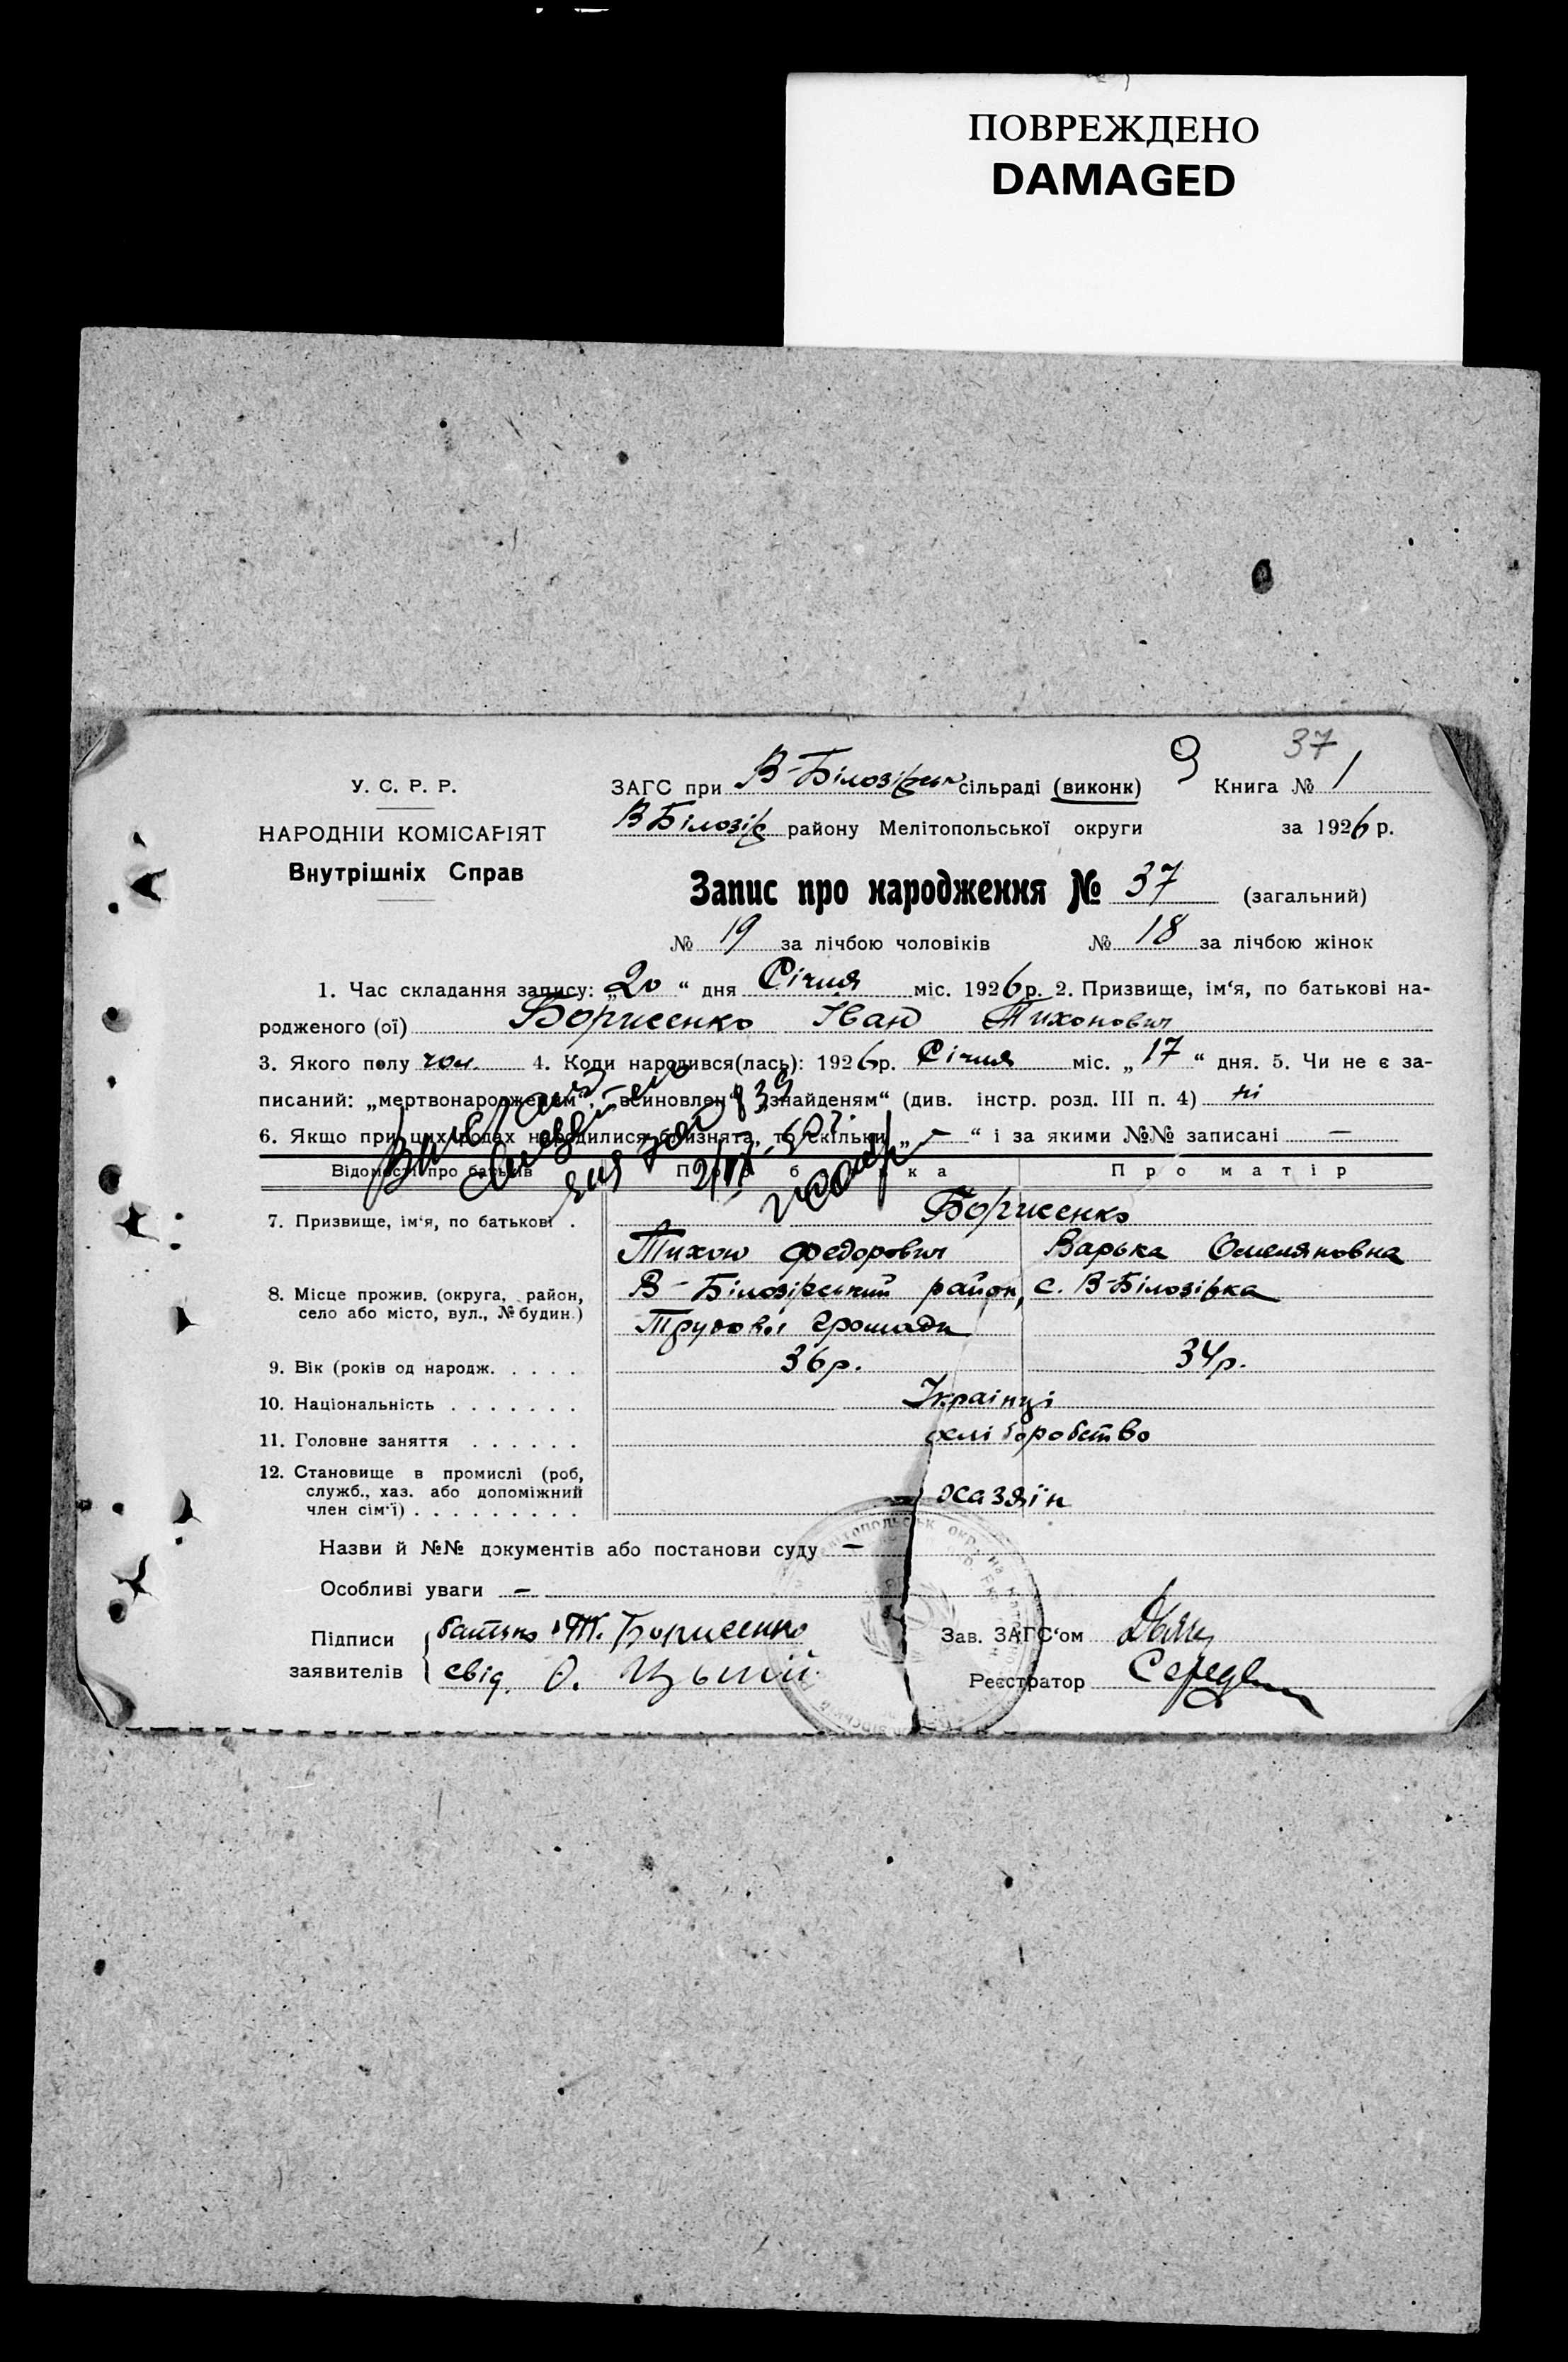 ПОВРЕЖДЕНО
DAMAGED
37
У. С. Р. Р.
НАРОДНІЙ КОМІСАРІЯТ
Внутрішніх Справ
ЗАГС при В-Білозірськ сільраді (виконк) Книга № 1
В Білозір району Мелітопольської округи за 1926 р.
Запис про народження № 37 (загальний)
№ 19 за лічбою чоловіків № 18 за лічбою жінок
1. Час складання запису: „20“ дня Січня міс. 1926 р. 2. Призвище, ім‘я, по батькові на-
родженого (ої) Борисенко Іван Тихонович
3. Якого полу чол. 4. Коли народився(лась): 1926 р. Січня міс. „17“ дня. 5. Чи не є за-
писаний: „мертвонародженим“, всиновлен знайденям“ (див. інстр. розд. III п. 4) ні
6. Якщо при цих родах народилися близнята, то скільки „—“ і за якими №№ записані —
Відомости про батьків Про батька Про матір
7. Призвище, ім‘я, по батькові . Борисенко
Тихон Федорович Варька Омеляновна
8. Місце прожив. (округа, район, село або місто, вул., № будин.) В-Білозірський район, с. В-Білозірка
Трудової Громади
9. Вік (років од народж. . . . . 36 р. 34 р.
10. Національність . . . . . . . Українці
11. Головне заняття . . . . . . хліборобство
12. Становище в промислі (роб,
служб., хаз. або допоміжний
член сім‘ї) . . . . . . . . . хазяїн
Назви й №№ документів або постанови суду —
Особливі уваги —
Підписи батько Т. Борисенко Зав. ЗАГС‘ом
заявителів свід. О. Реєстратор